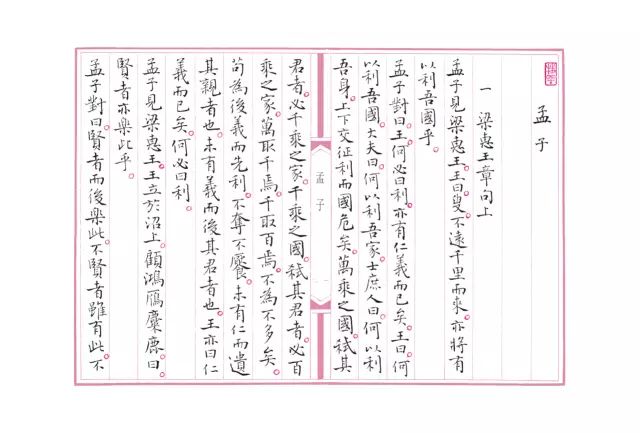 孟子
一 梁惠王章句上
孟子見梁惠王。王曰叟。不遠千里而來。亦將有
以利吾國乎。
孟子對曰王。何必曰利。亦有仁義而已矣。王曰何
以利吾國。大夫曰何以利吾家。士庶人曰何以利
吾身。上下交征利而國危矣。萬乘之國。弒其
孟子
一
君者。必千乘之家。千乘之國。弒其君者。必百
乘之家。萬取千焉。千取百焉。不為不多矣。
苟為後義而先利。不奪不饜。未有仁而遺
其親者也。未有義而後其君者也。王亦曰仁
義而已矣。何必曰利。
孟子見梁惠王。王立於沼上。顧鴻鴈麋鹿。曰
賢者亦樂此乎。
孟子對曰。賢者而後樂此。不賢者雖有此。不